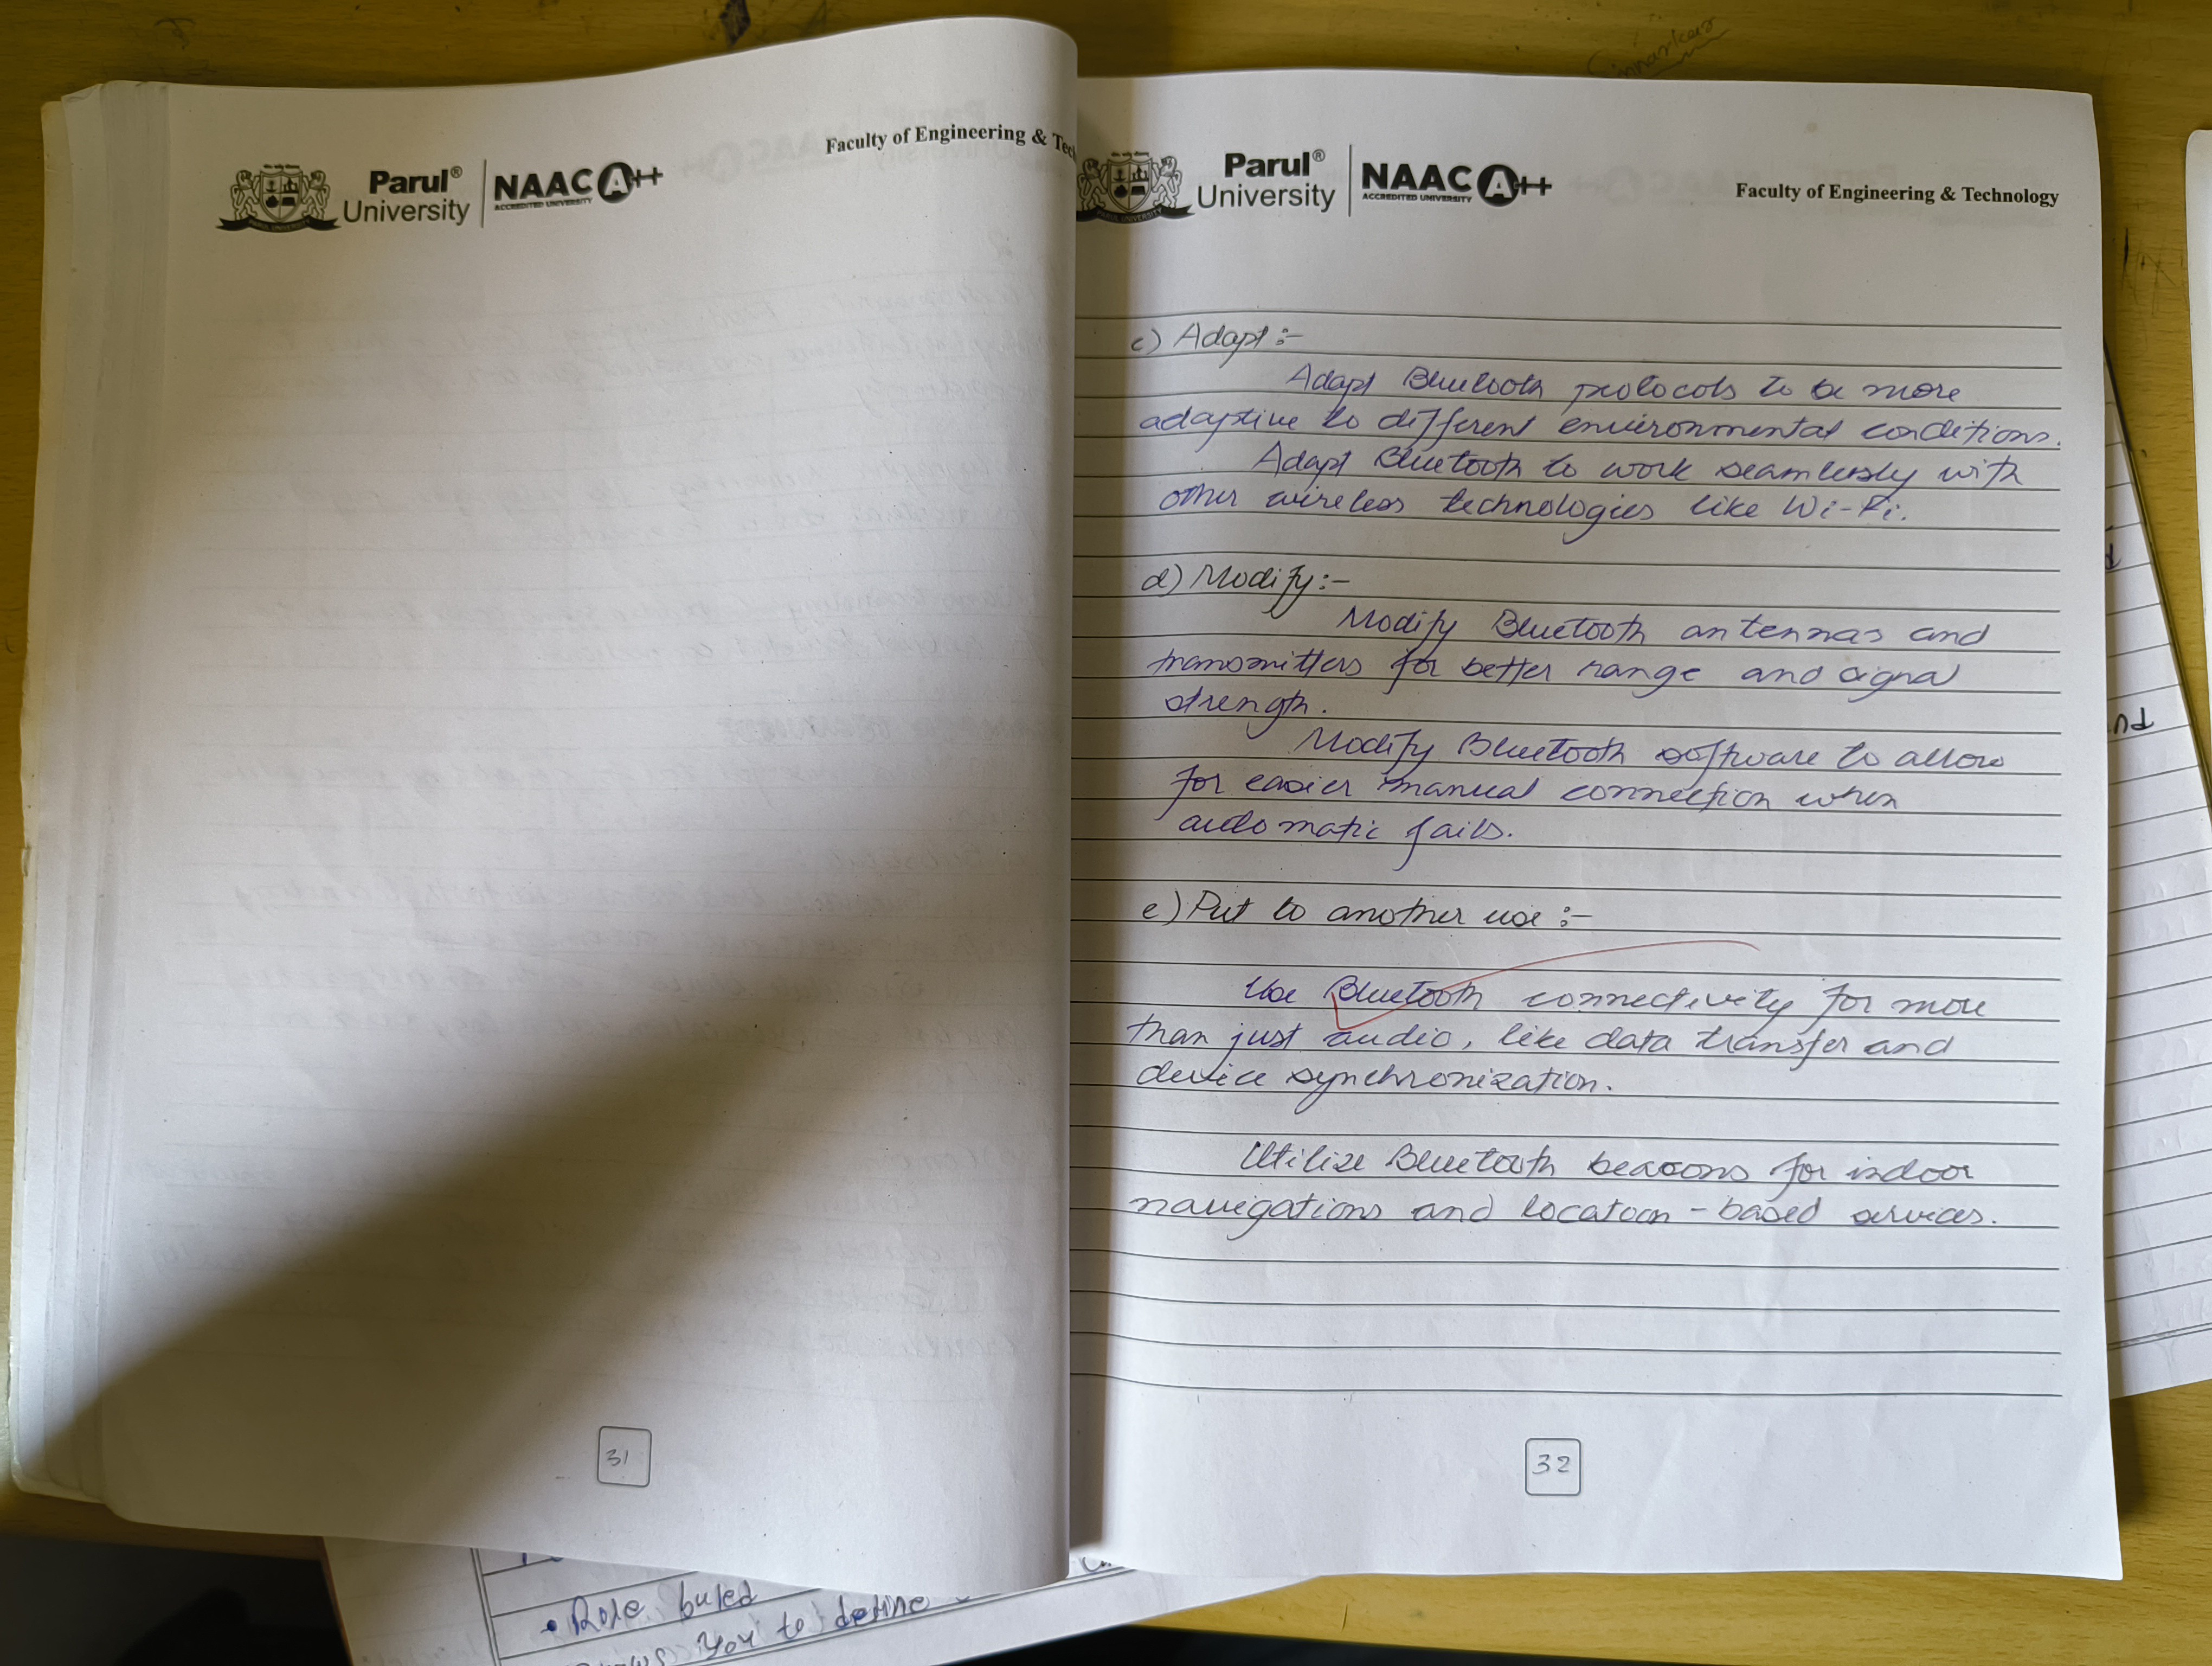 Faculty of Engineering & Tec
Parul® University
NAAC A++
ACCREDITED UNIVERSITY
31
Parul® University
NAAC A++
ACCREDITED UNIVERSITY
Faculty of Engineering & Technology
c) Adapt :-
Adapt Bluetooth protocols to be more
adaptive to different environmental conditions.
Adapt Bluetooth to work seamlessly with
other wireless technologies like Wi-Fi.
d) Modify :-
Modify Bluetooth antennas and
transmitters for better range and signal
strength.
Modify Bluetooth software to allow
for easier manual connection when
automatic fails.
e) Put to another use :-
Use Bluetooth connectivity for more
than just audio, like data transfer and
device synchronization.
Utilize Bluetooth beacons for indoor
navigations and location-based services.
32
• Role
you to define